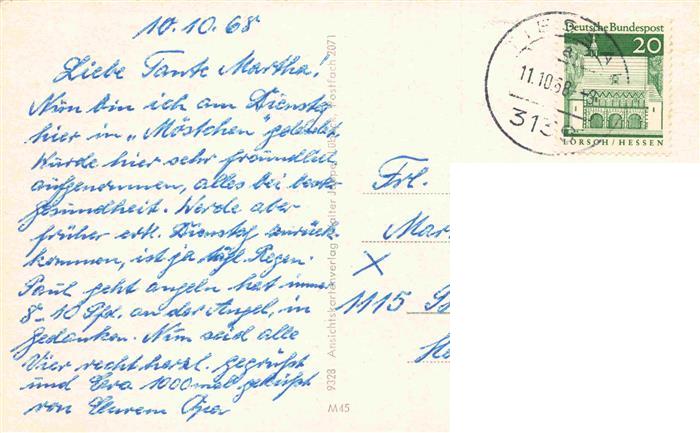 10.10.68
Liebe Tante Martha!
Nun bin ich am Dienstg
hier in „Möstchen" gelandet
Würde hier sehr freundlich
aufgenommen, alles bei beste
gesundheit. Werde aber
früher erkl. Dienstag zurück
kommen, ist ja tägl. Regen.
Paul geht angeln hat immer
8-10 Pfd. an der Angel, in
gedanken. Nun seid alle
Vier recht herzl. gegrüßt
und Eva 1000 mal geküßt
von Eurem Opa
9328 Ansichtskartenverlag Postfach 2071
M45
11.10.68
313
Deutsche Bundespost
20
LORSCH / HESSEN
Frl.
X
1115